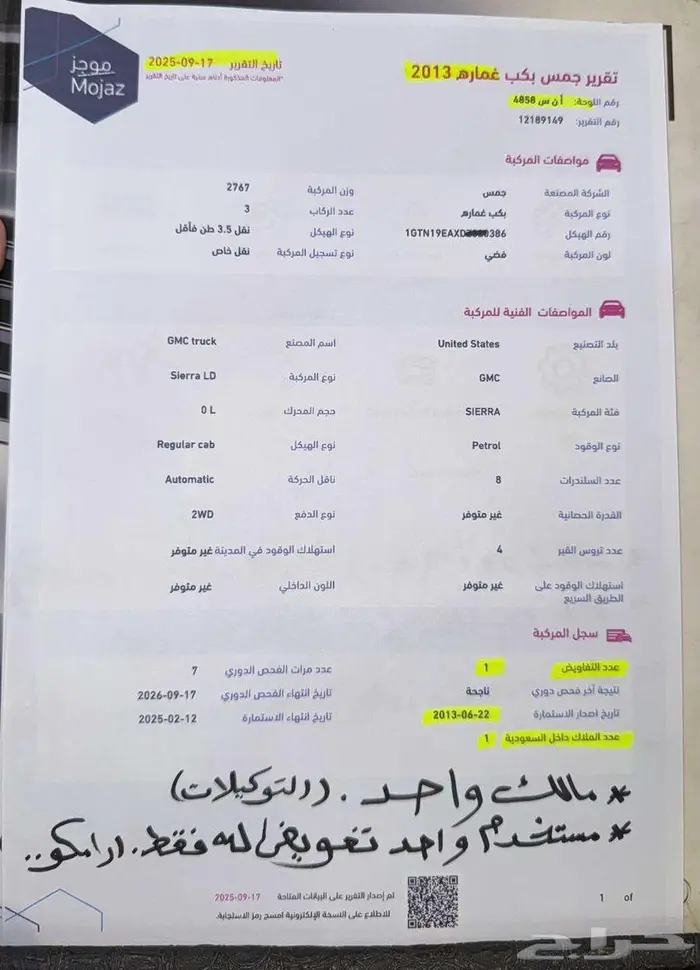 موجز
Mojaz
تاريخ التقرير 2025-09-17
*المعلومات المذكورة أدناه مبنية على تاريخ التقرير
تقرير جمس بكب غماره 2013
رقم اللوحة: أ ن س 4858
رقم التقرير: 12189149
مواصفات المركبة
الشركة المصنعة جمس وزن المركبة 2767
نوع المركبة بكب غماره عدد الركاب 3
رقم الهيكل 1GTN19EAXD 386 نوع الهيكل نقل 3.5 طن فأقل
لون المركبة فضي نوع تسجيل المركبة نقل خاص
المواصفات الفنية للمركبة
بلد التصنيع United States اسم المصنع GMC truck
الصانع GMC نوع المركبة Sierra LD
فئة المركبة SIERRA حجم المحرك 0 L
نوع الوقود Petrol نوع الهيكل Regular cab
عدد السلندرات 8 ناقل الحركة Automatic
القدرة الحصانية غير متوفر نوع الدفع 2WD
عدد تروس القير 4 استهلاك الوقود في المدينة غير متوفر
استهلاك الوقود على الطريق السريع غير متوفر اللون الداخلي غير متوفر
سجل المركبة
عدد التفاويض 1 عدد مرات الفحص الدوري 7
نتيجة آخر فحص دوري ناجحة تاريخ انتهاء الفحص الدوري 2026-09-17
تاريخ اصدار الاستمارة 2013-06-22 تاريخ انتهاء الاستمارة 2025-02-12
عدد الملاك داخل السعودية 1
* مالك واحد . (التوكيلات)
* مستخدم واحد تفويض له فقط . ارامكو ..
تم إصدار التقرير على البيانات المتاحة 2025-09-17
للاطلاع على النسخة الإلكترونية امسح رمز الاستجابة.
1 of
حراج